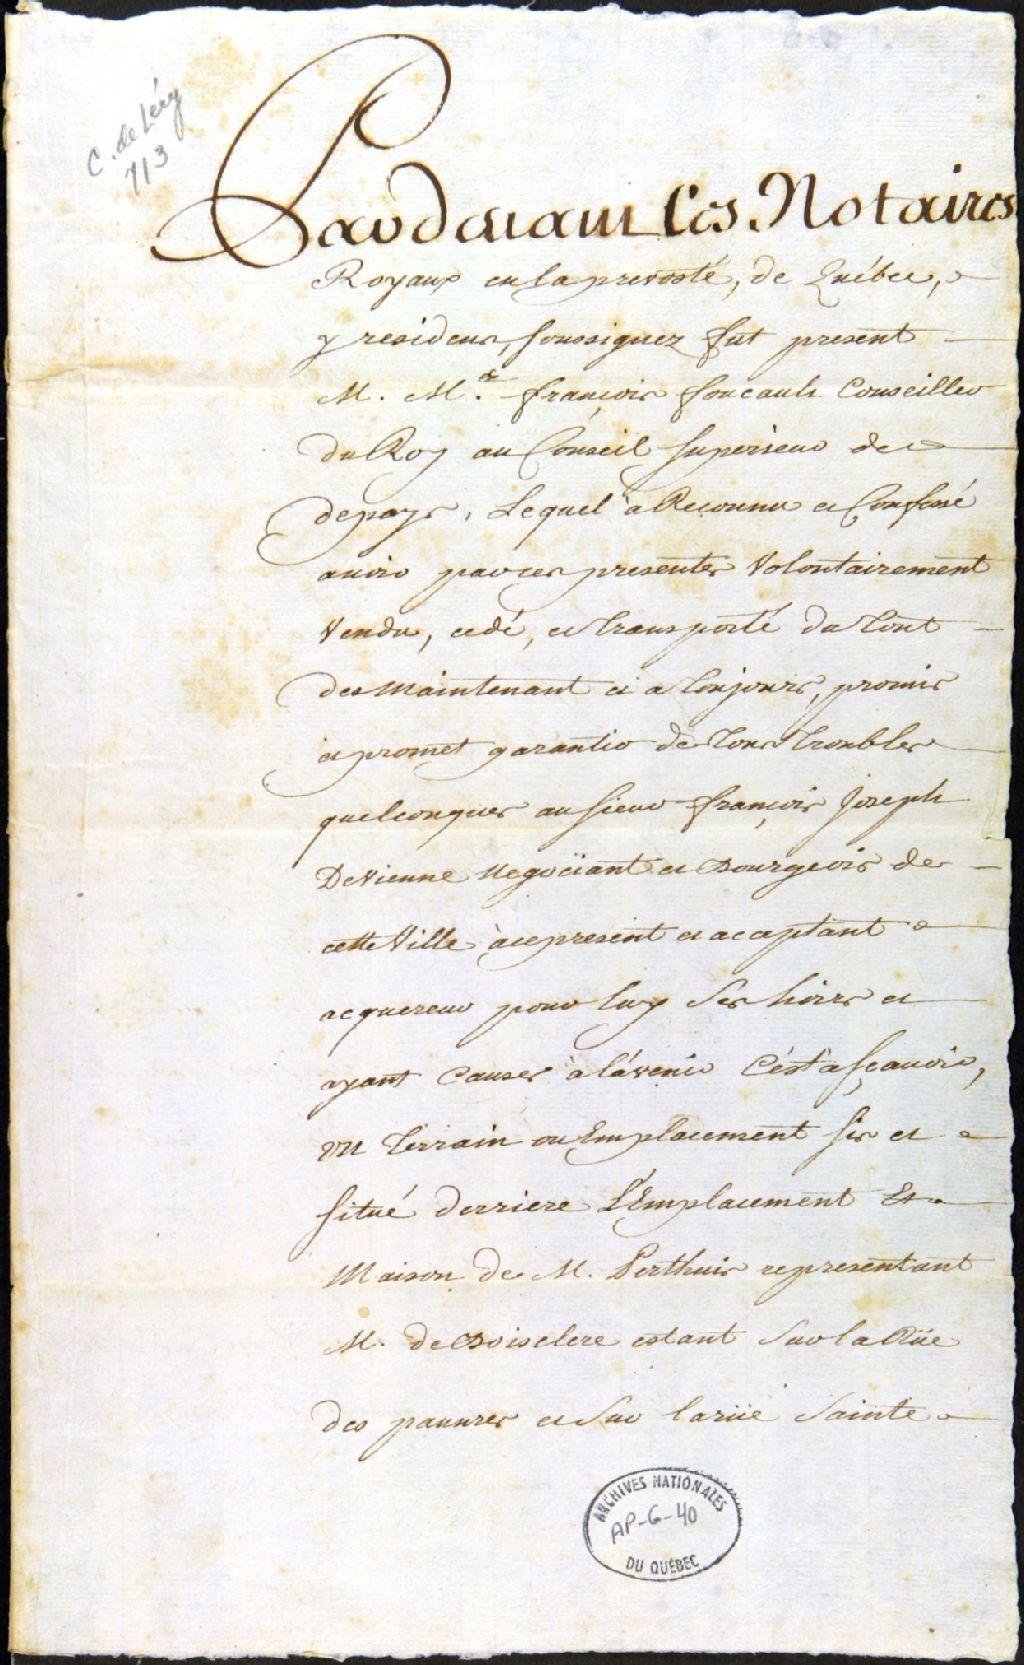 C. de Léry
713
Pardevant Les Notaires
Royaux en la prevosté, de Québec,
y residens, soussignez fut present
M. Me. françois foucault Conseiller
du Roy au Conseil Superieur de ce
de pays, Lequel à Reconnu et Confessé
avoir par ces presentes Volontairement
Vendu, cedé, et transporté du tout
des maintenant et a toujours, promis
et promet garantir de tous troubles
quelconques au sieur françois Joseph
DeVienne Negociant et Bourgeois de
cette Ville à ce present et acceptant
acquereur pour luy Ses hoirs et
ayant Causes à l'avenir C'est a sçavoir,
un terrain ou Emplacement sis et
situé derriere L'Emplacement Et
Maison de M. Perthuis representant
M. de Boisclere estant Sur la Rüe
des pauvres et Sur la rüe Sainte
ARCHIVES NATIONALES
AP-G-40
DU QUÉBEC